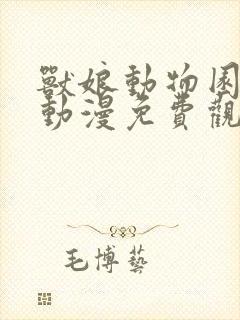 獸娘動物園
動漫免費觀
毛博藝